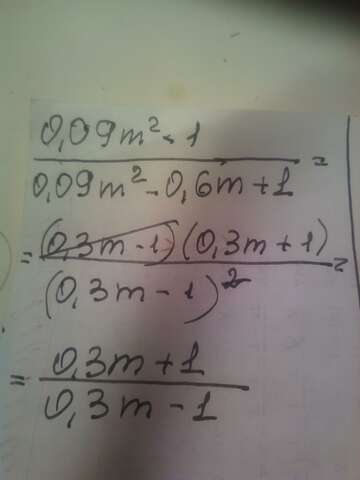 0,09m² - 1
0,09m² - 0,6m + 1 =
= (0,3m - 1)(0,3m + 1) =
(0,3m - 1)²
= 0,3m + 1
0,3m - 1